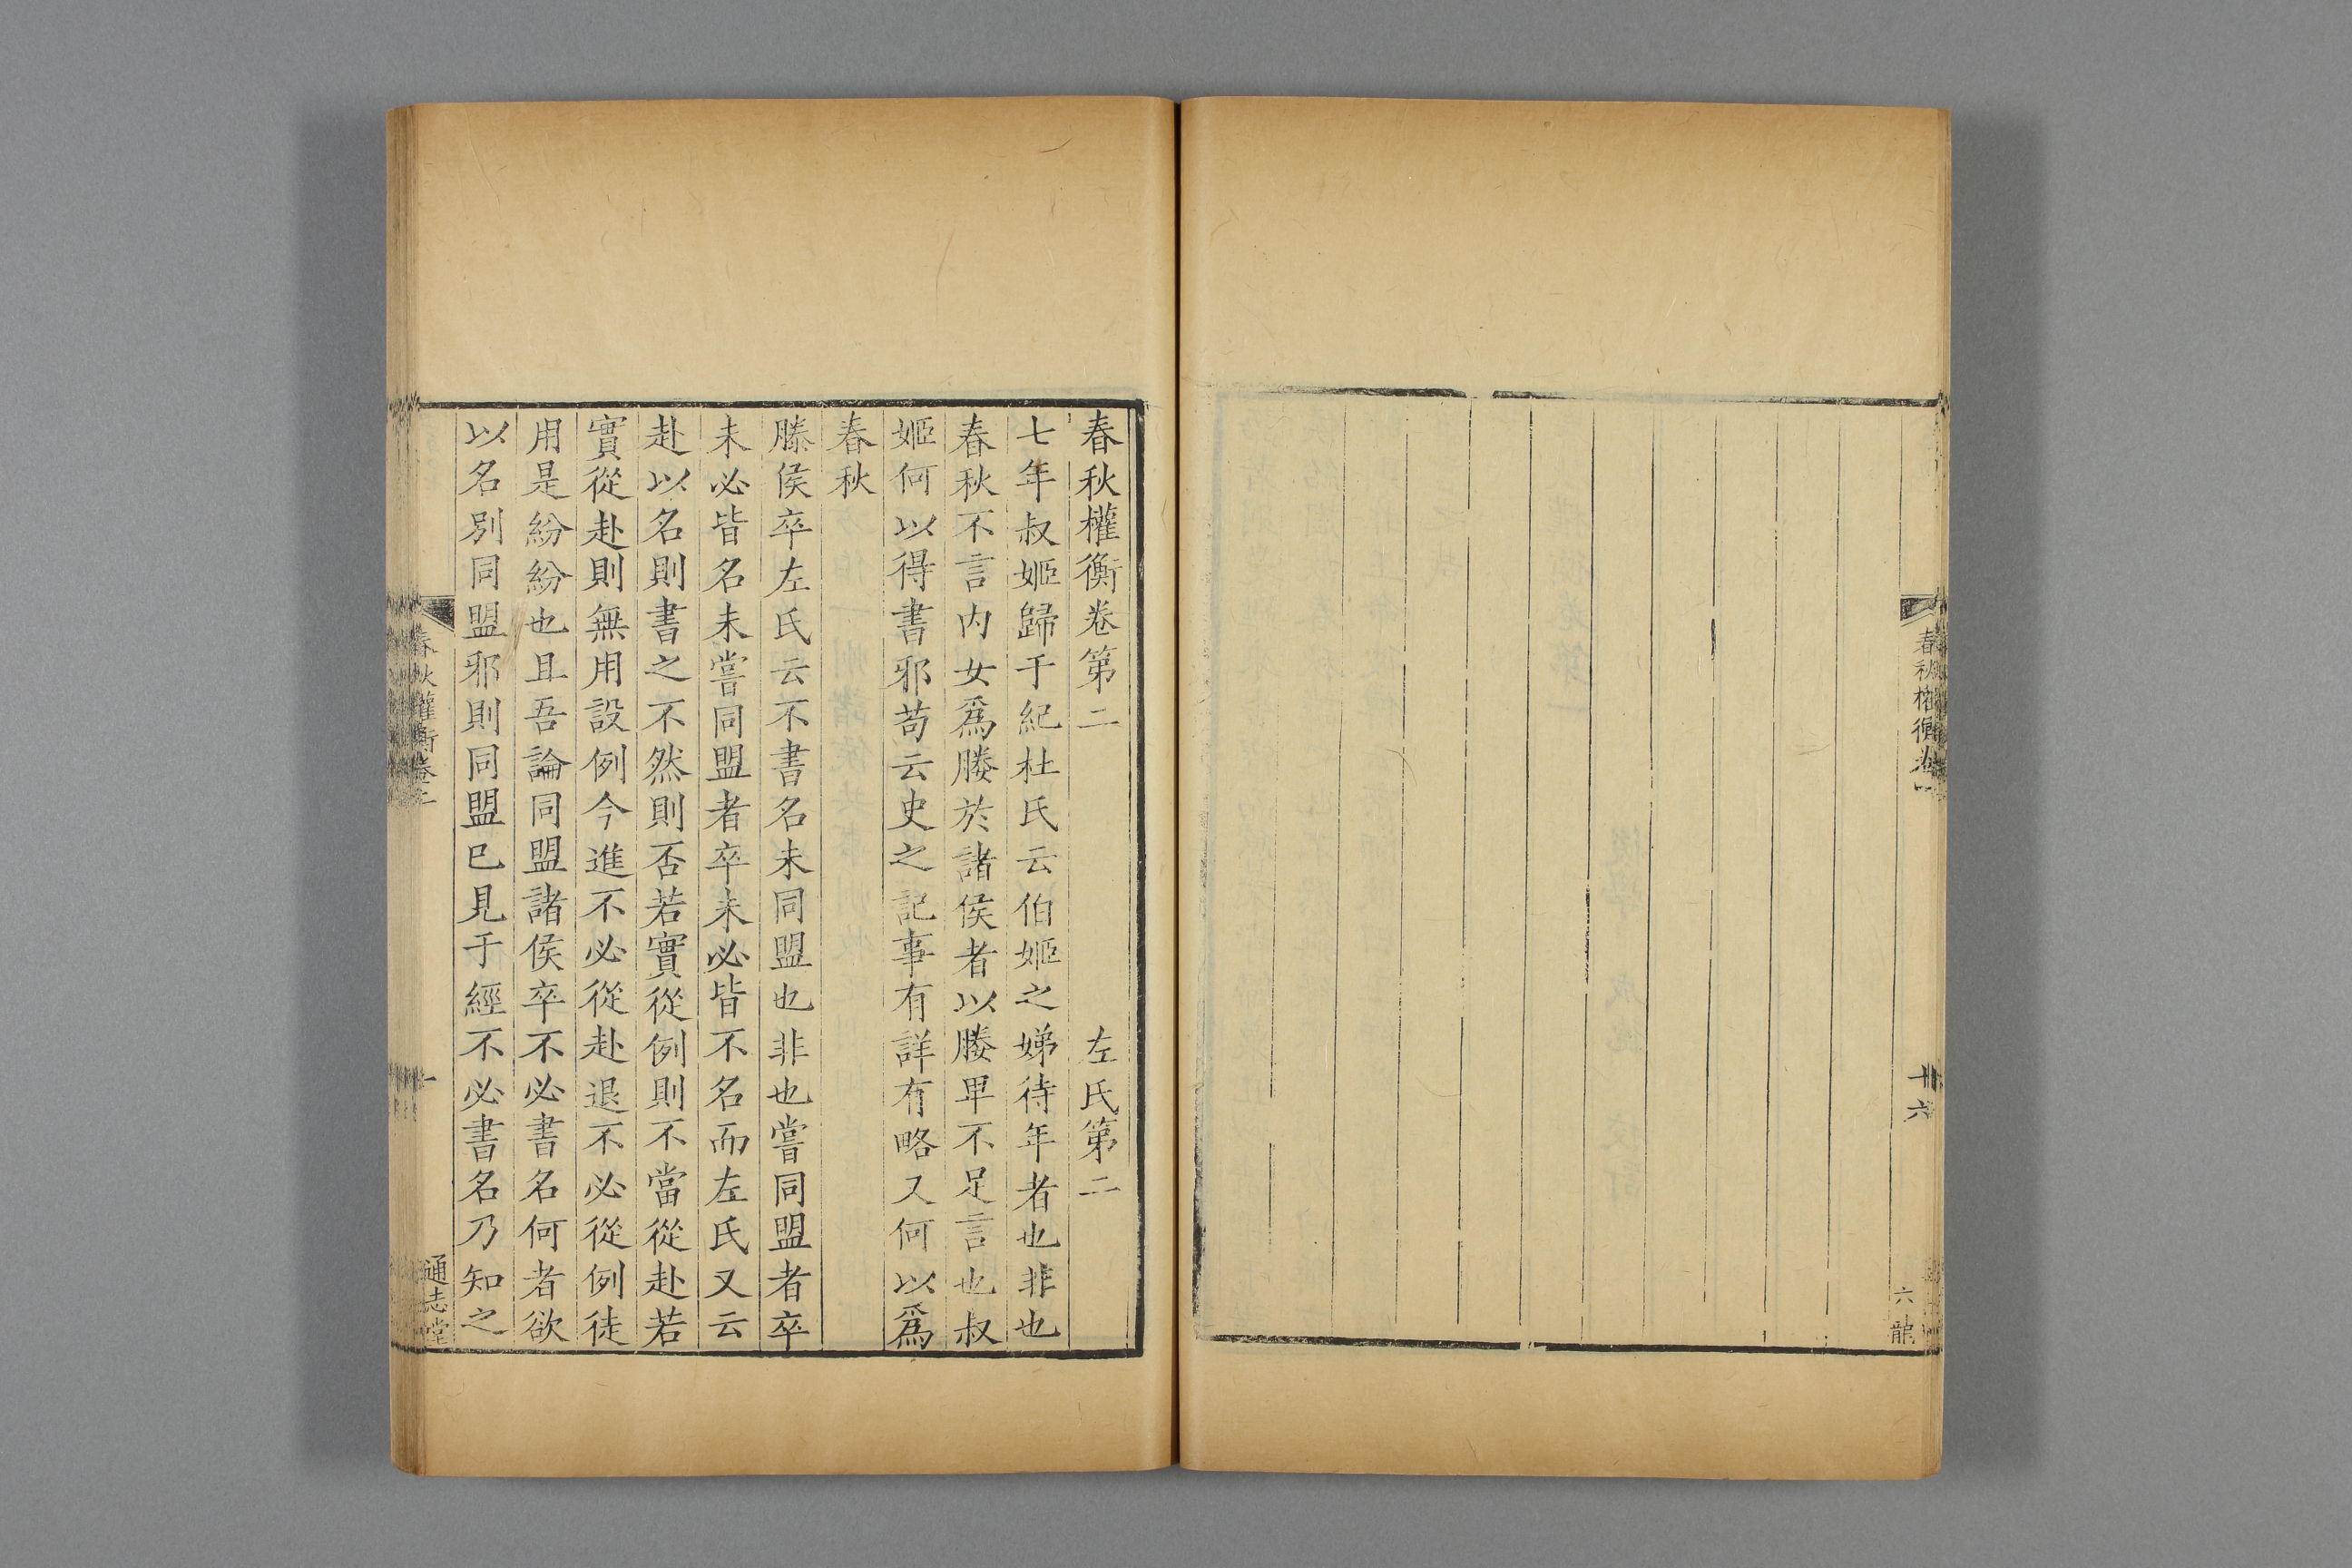 春秋權衡卷一
十六
六
龍
春秋權衡卷第二 左氏第二
七年叔姬歸于紀杜氏云伯姬之娣待年者也非也
春秋不言内女爲媵於諸侯者以媵卑不足言也叔
姬何以得書邪苟云史之記事有詳有略又何以爲
春秋
滕侯卒左氏云不書名未同盟也非也嘗同盟者卒
未必皆名未嘗同盟者卒未必皆不名而左氏又云
赴以名則書之不然則否若實從例則不當從赴若
實從赴則無用設例今進不必從赴退不必從例徒
用是紛紛也且吾論同盟諸侯卒不必書名何者欲
以名别同盟邪則同盟已見于經不必書名乃知之
春秋權衡卷二
一
通志堂